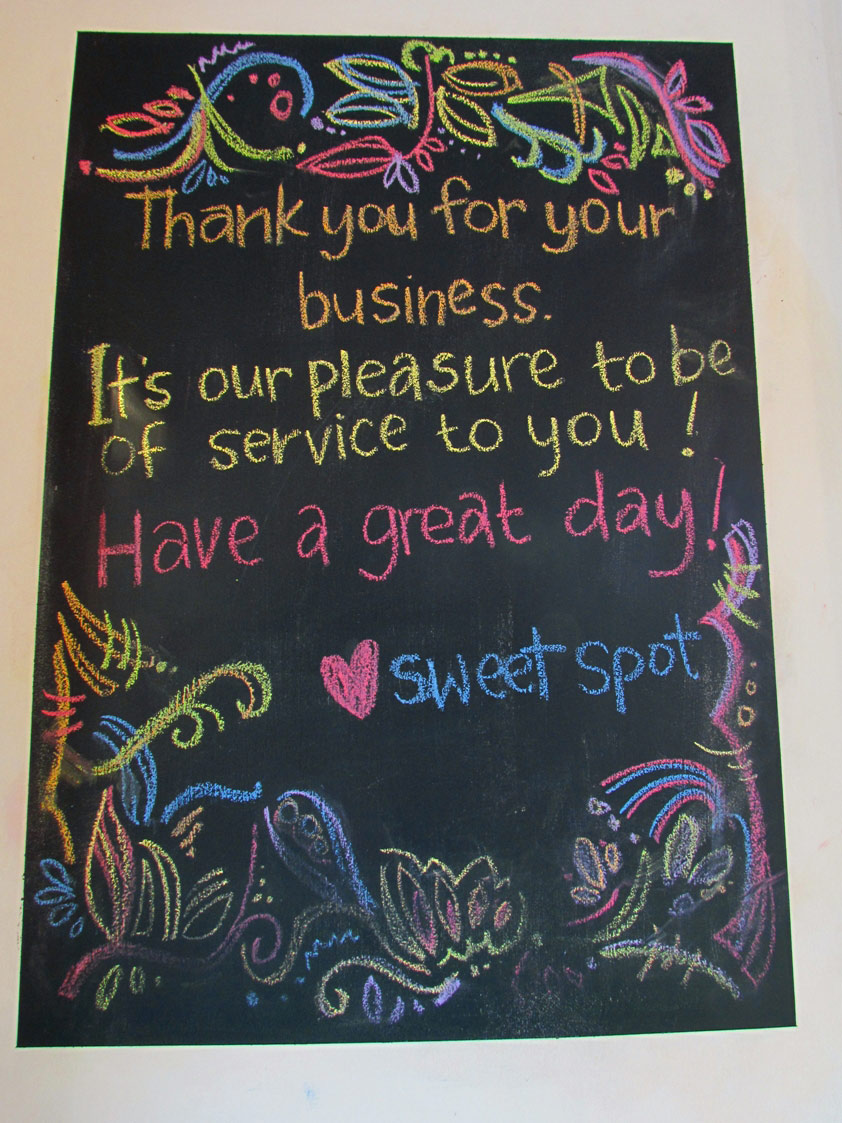 Thank you for your
business.
It's our pleasure to be
of service to you !
Have a great day!
sweet spot